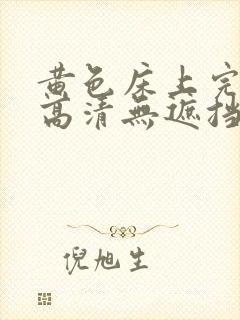 黄色床上完
高清無遮挡
倪旭生